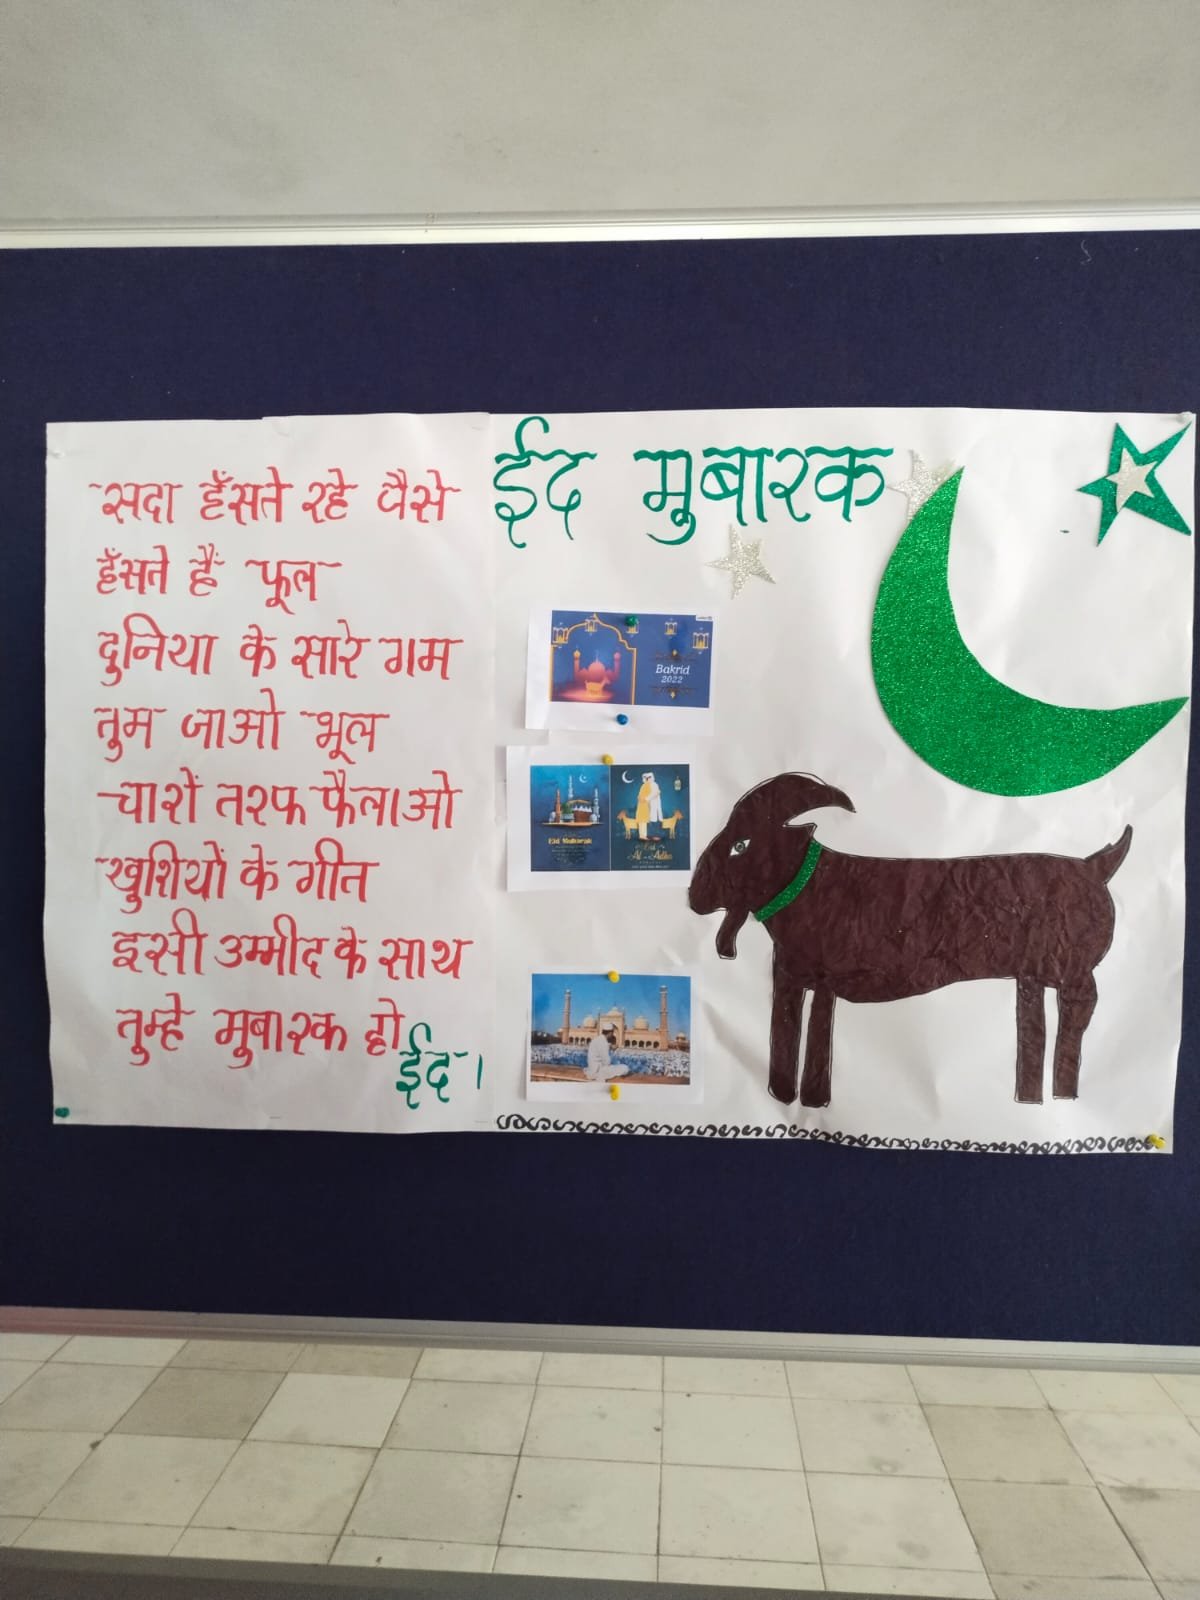 सदा हँसते रहे वैसे
हँसते हैं फूल
दुनिया के सारे गम
तुम जाओ भूल
चारों तरफ फैलाओ
खुशियों के गीत
इसी उम्मीद के साथ
तुम्हे मुबारक हो
ईद।
ईद मुबारक
Bakrid
2022
Eid Mubarak
Eid
Al-Adha